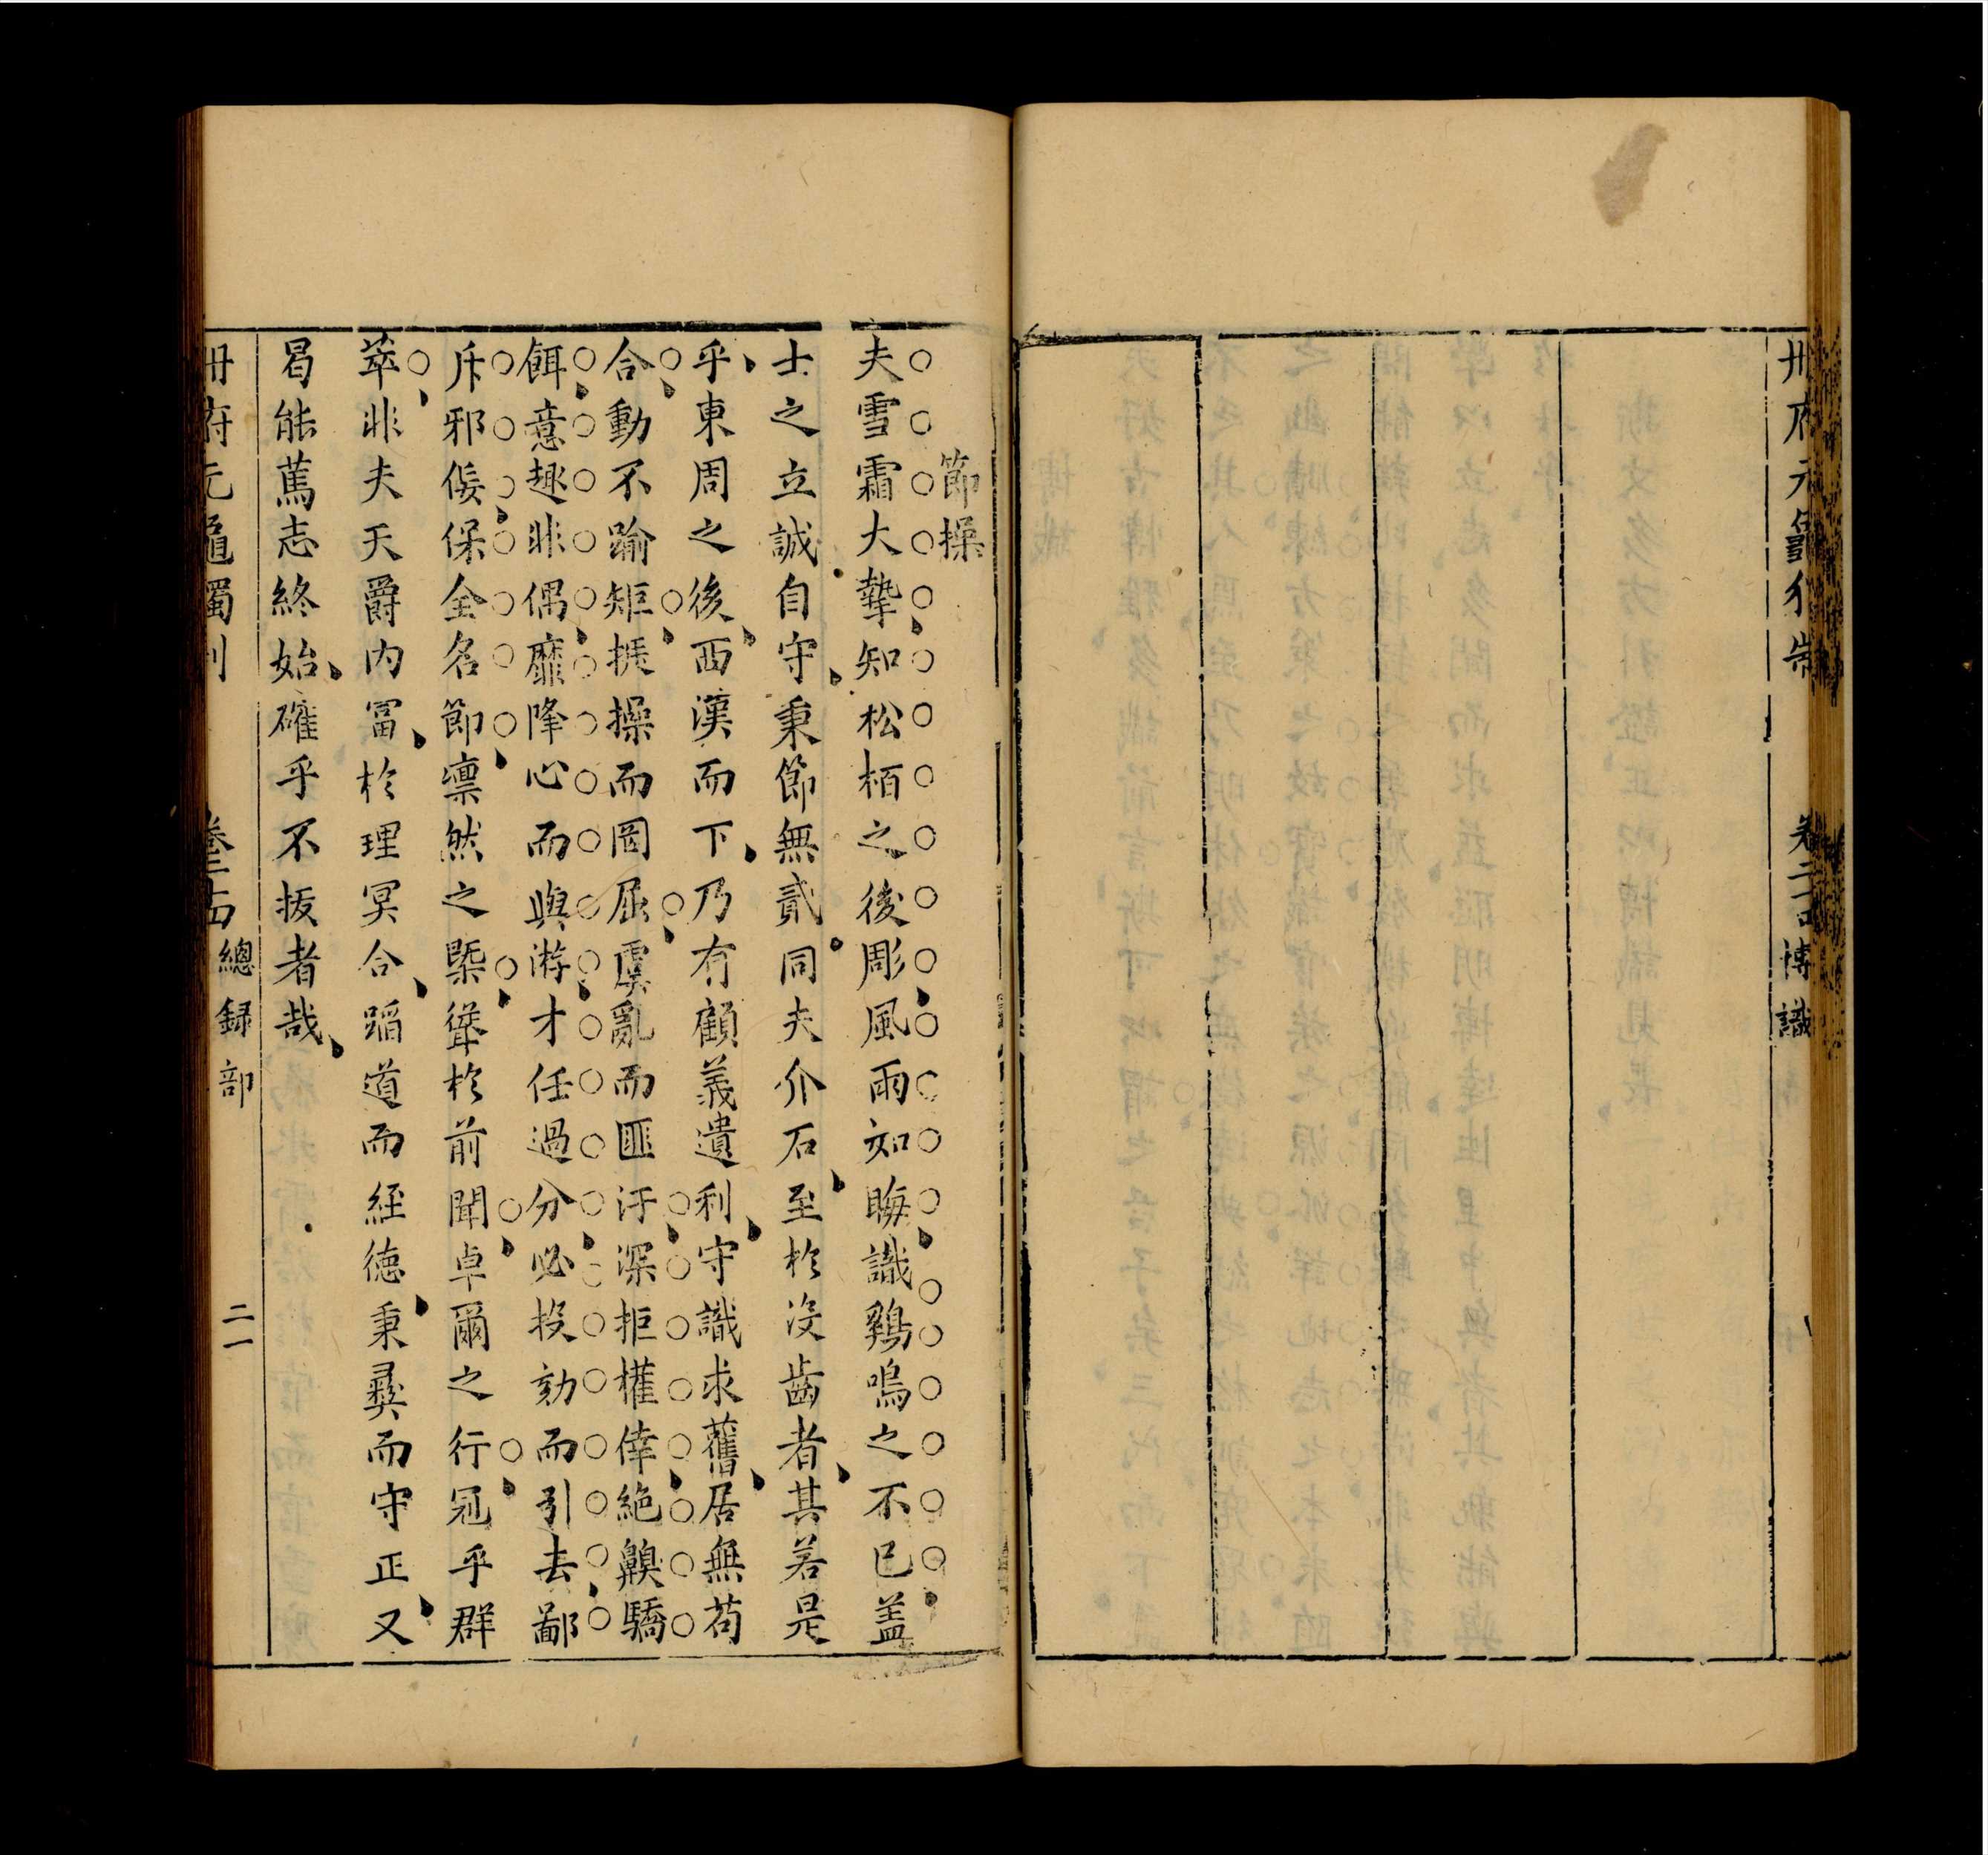 博識
節操
夫雪霜大摯知松栢之後彫風雨如晦識鷄鳴之不已盖
士之立誠自守秉節無貳同夫介石至於没齒者其若是
乎東周之後西漢而下乃有顧義遺利守識求舊居無苟
合動不踰矩挺操而罔屈虞亂而匪汙深拒權倖絶齅驕
餌意趣非偶靡降心而與游才任過分必投劾而引去鄙
斥邪佞保全名節凛然之槩聳於前聞卓爾之行冠乎群
萃非夫天爵内冨於理冥合蹈道而經德秉彛而守正又
曷能蔫志終始確乎不拔者哉
總録部
二一